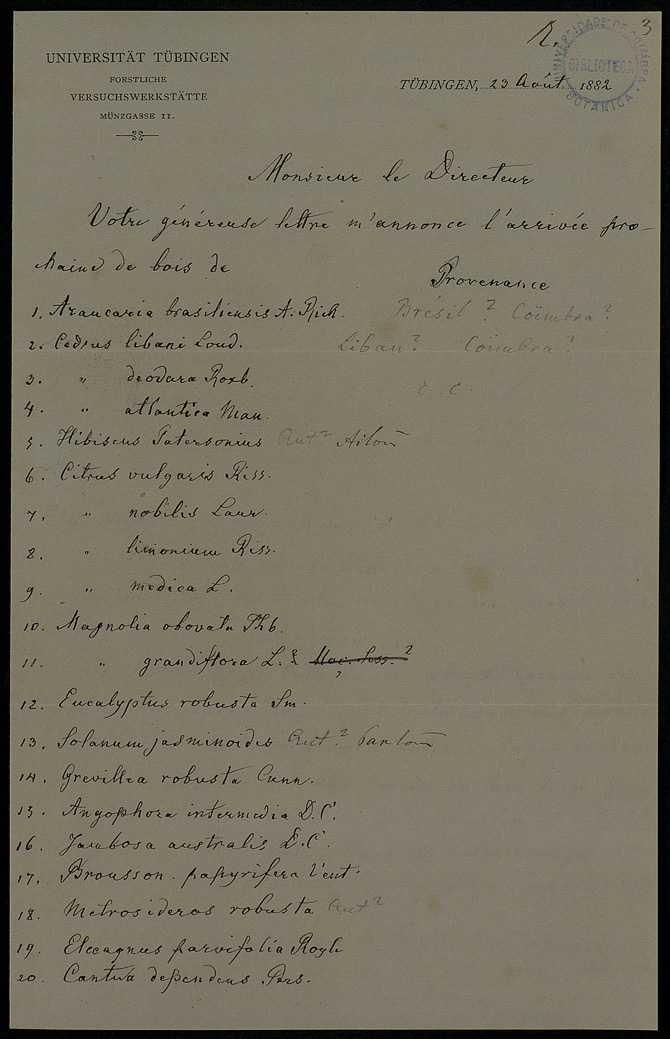 R. 3
UNIVERSIDADE DE COIMBRA BIBLIOTECA BOTANICA
UNIVERSITÄT TÜBINGEN
FORSTLICHE
VERSUCHSWERKSTÄTTE
MÜNZGASSE 11.
TÜBINGEN, 23 Août 1882
Monsieur le Directeur
Votre généreuse lettre m'annonce l'arrivée pro-
chaine de bois de
Provenance
1. Araucaria brasiliensis A. Rich. Brésil? Coïmbra?
2. Cedrus libani Loud. Liban? Coïmbra?
3. " deodara Roxb. C. C.
4. " atlantica Man.
5. Hibiscus Patersonius Aut? Aiton
6. Citrus vulgaris Riss.
7. " nobilis Lour.
8. " limonium Riss.
9. " medica L.
10. Magnolia obovata Thb.
11. " grandiflora L. ?
12. Eucalyptus robusta Sm.
13. Solanum jasminoides Aut.? Paxton
14. Grevillea robusta Cunn.
15. Angophora intermedia D.C.
16. Jambosa australis D.C.
17. Brousson. papyrifera Vent.
18. Metrosideros robusta Aut?
19. Eleagnus parvifolia Royle
20. Cantua dependens Pers.